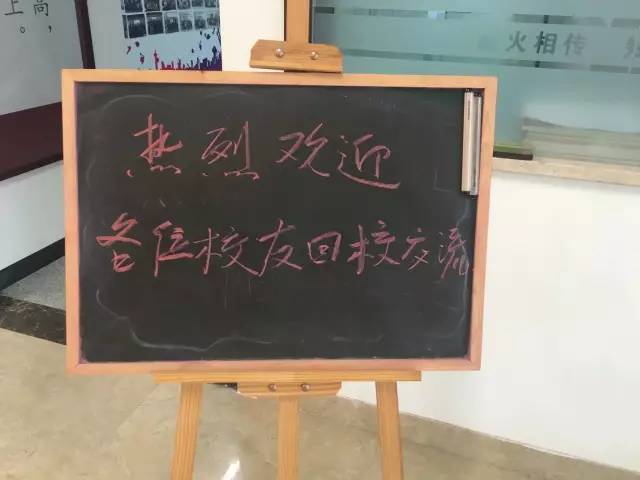 热烈欢迎
各位校友回校交流
火相传
上高